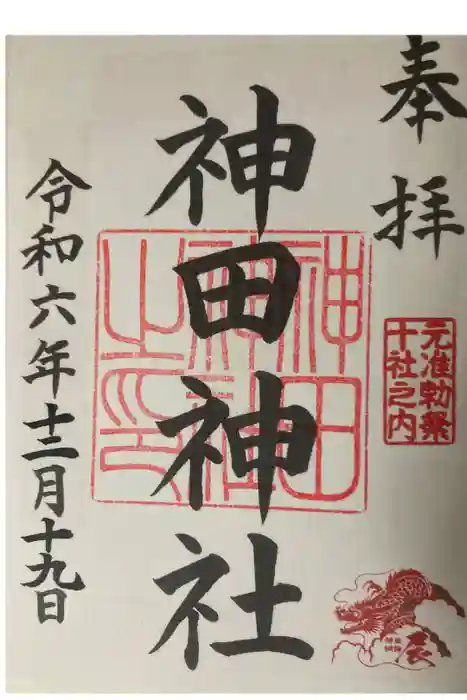 奉拝
元准勅祭
十社之内
神田神社
神田
神社
之印
令和六年十二月十九日
辰